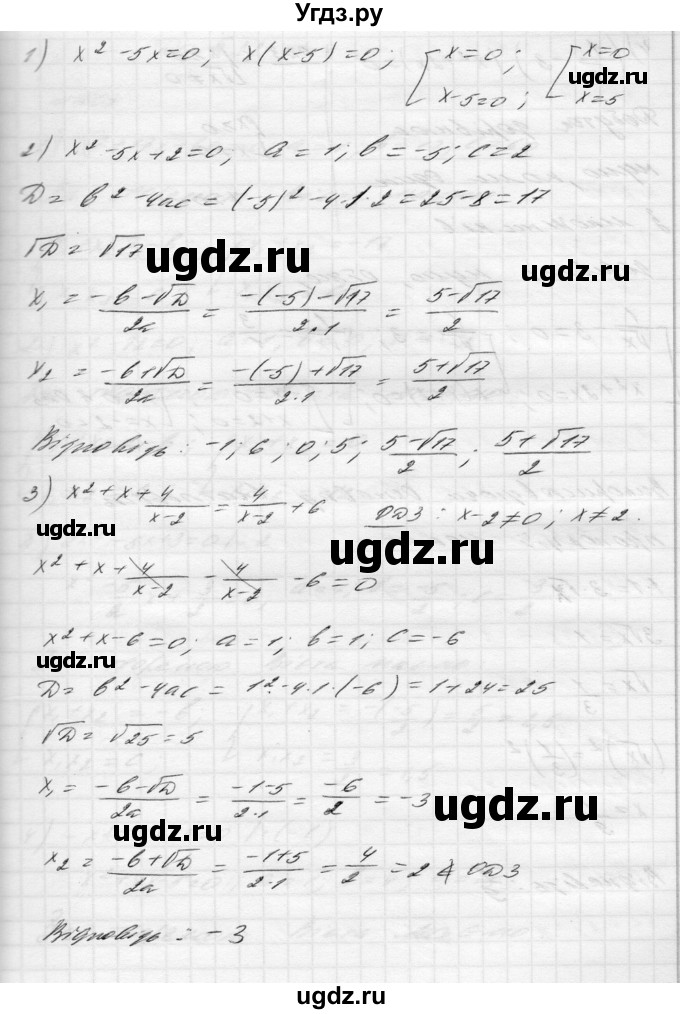 Угдз.ру
1) x² - 5x = 0; x(x-5) = 0; [x=0; x-5=0; [x=0 x=5
ugdz.ru
2) x² - 5x + 2 = 0; a = 1; b = -5; c = 2
D = b² - 4ac = (-5)² - 4·1·2 = 25 - 8 = 17
√D = √17
ugdz.ru
ugdz.ru
x₁ = (-b-√D)/2a = (-(-5)-√17)/(2·1) = (5-√17)/2
x₂ = (-b+√D)/2a = (-(-5)+√17)/(2·1) = (5+√17)/2
Відповідь: -1; 6; 0; 5; (5-√17)/2; (5+√17)/2
3) x² + x + 4/(x-2) = 4/(x-2) + 6 ОДЗ: x-2≠0; x≠2.
ugdz.ru
ugdz.ru
x² + x + 4/(x-2) - 4/(x-2) - 6 = 0
x² + x - 6 = 0; a = 1; b = 1; c = -6
ugdz.ru
D = b² - 4ac = 1² - 4·1·(-6) = 1 + 24 = 25
√D = √25 = 5
x₁ = (-b-√D)/2a = (-1-5)/(2·1) = -6/2 = -3
ugdz.ru
ugdz.ru
x₂ = (-b+√D)/2a = (-1+5)/(2·1) = 4/2 = 2 ∉ ОДЗ
Відповідь: -3
ugdz.ru
ugdz.ru